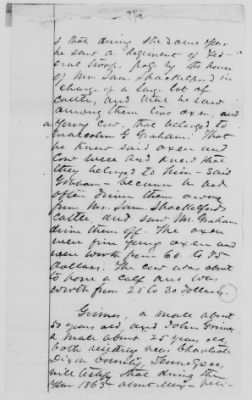 s that during the same year
he saw a regiment of Fed-
eral troops pass by the house
of Mr. Sam Shackelford in
charge of a large lot of
cattle, and that he saw
among them two oxen, and
a young cow that belonged to
Malcolm G Graham. That
he knew said oxen and
cow well and knew that
they belonged to him - said
Graham - because he had
often driven them away
from Mr. Sam Shackelfords
cattle and saw Mr. Graham
drive them off. The oxen
were fine young oxen and
were worth from 60 to 75
dollars. The cow was about
to have a calf and was
worth from 25 to 30 dollars.
Grimes, a male about
50 years old and John Grimes
a male about 25 years old,
both residing near Charlotte
Dixon County, Tennessee,
will testify that during the
year 1863 about